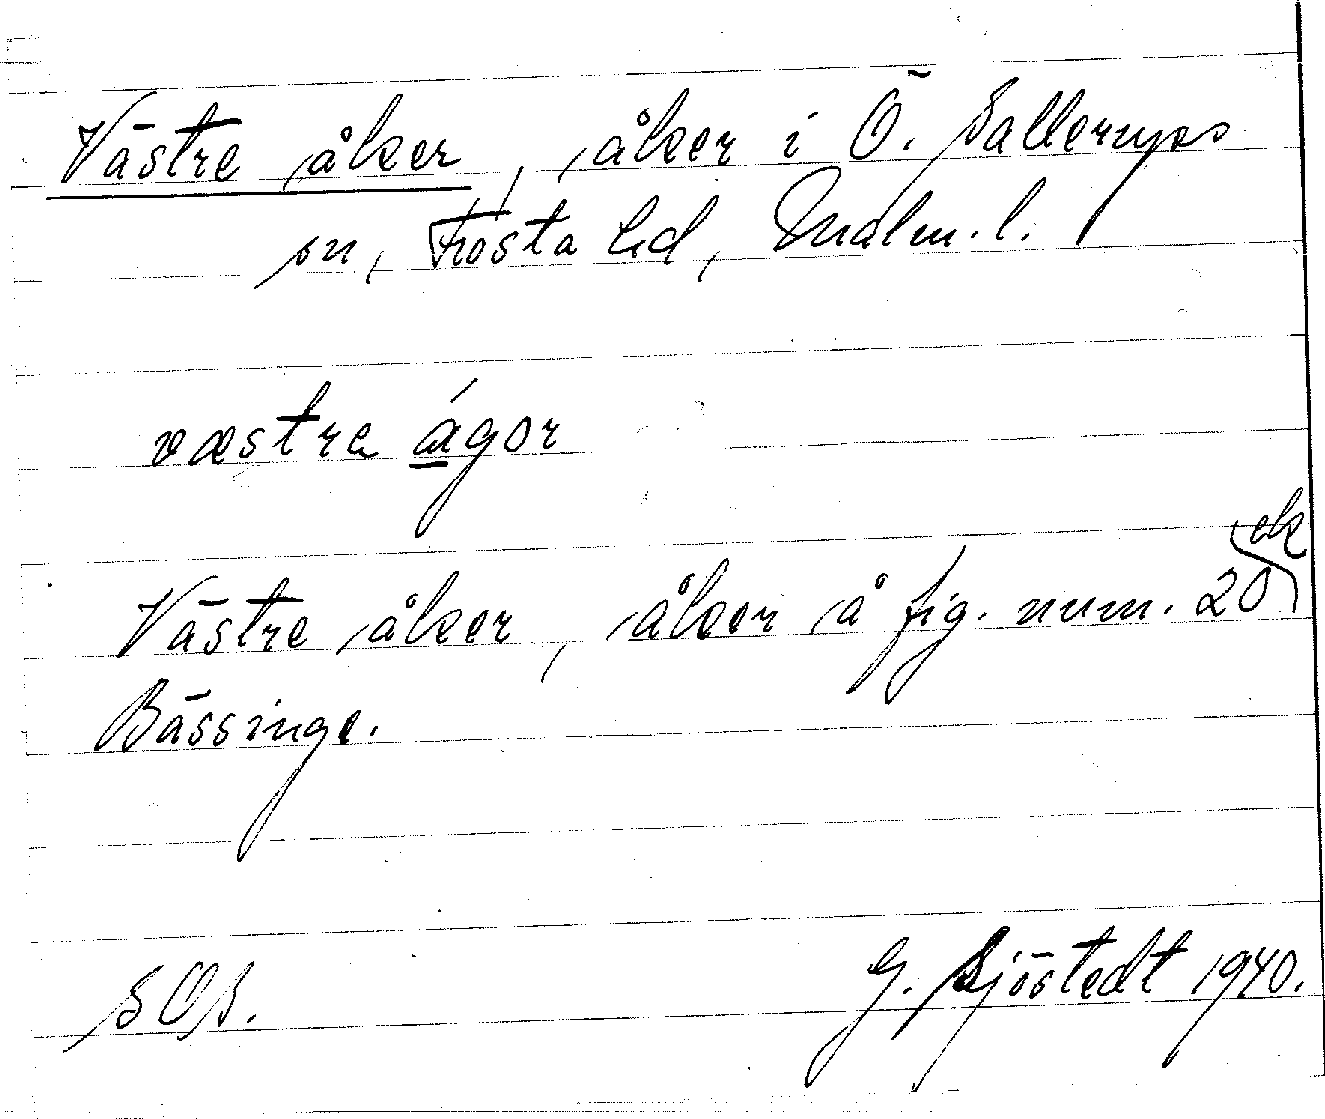 Västre åker, åker i Ö. Sallerups
sn, Frosta hd, Malm. l.
væstre ágor
ek
Västre åker, åker å fig. num. 20
Bässinge.
SOS.
G. Sjöstedt 1940.